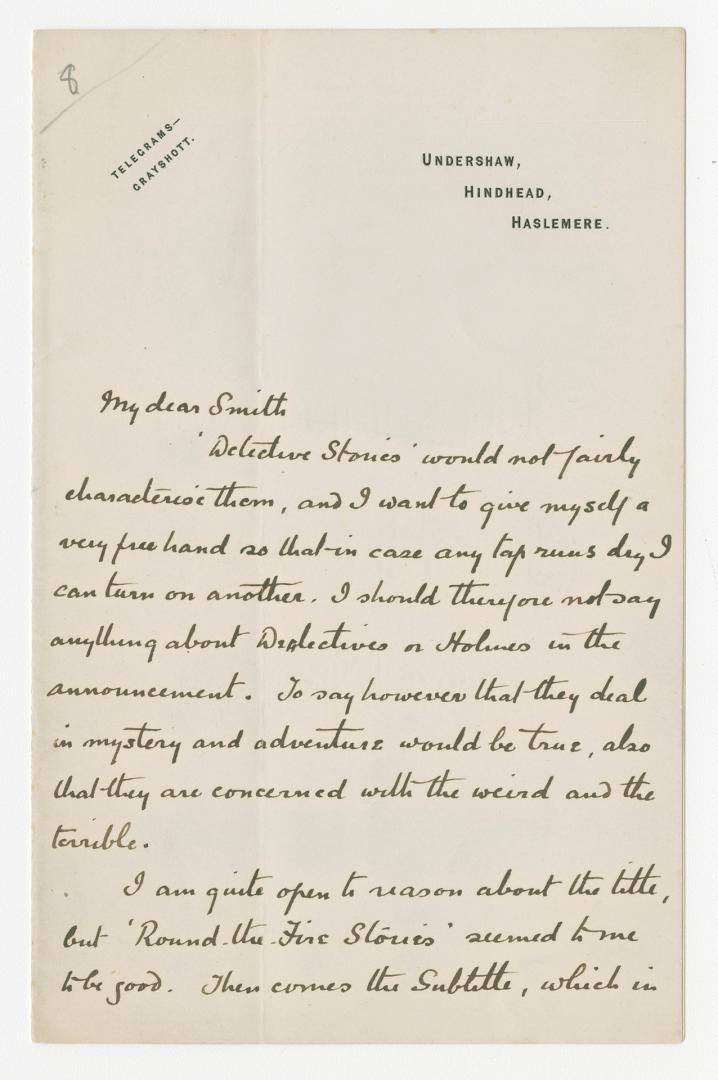 8
TELEGRAMS—
GRAYSHOTT.
UNDERSHAW,
HINDHEAD,
HASLEMERE.
My dear Smith
'Detective Stories' would not fairly
characterise them, and I want to give myself a
very free hand so that in case any tap runs dry I
can turn on another. I should therefore not say
anything about Detectives or Holmes in the
announcement. To say however that they deal
in mystery and adventure would be true, also
that they are concerned with the weird and the
terrible.
I am quite open to reason about the title,
but 'Round-the-Fire Stories' seemed to me
to be good. Then comes the Subtitle, which in